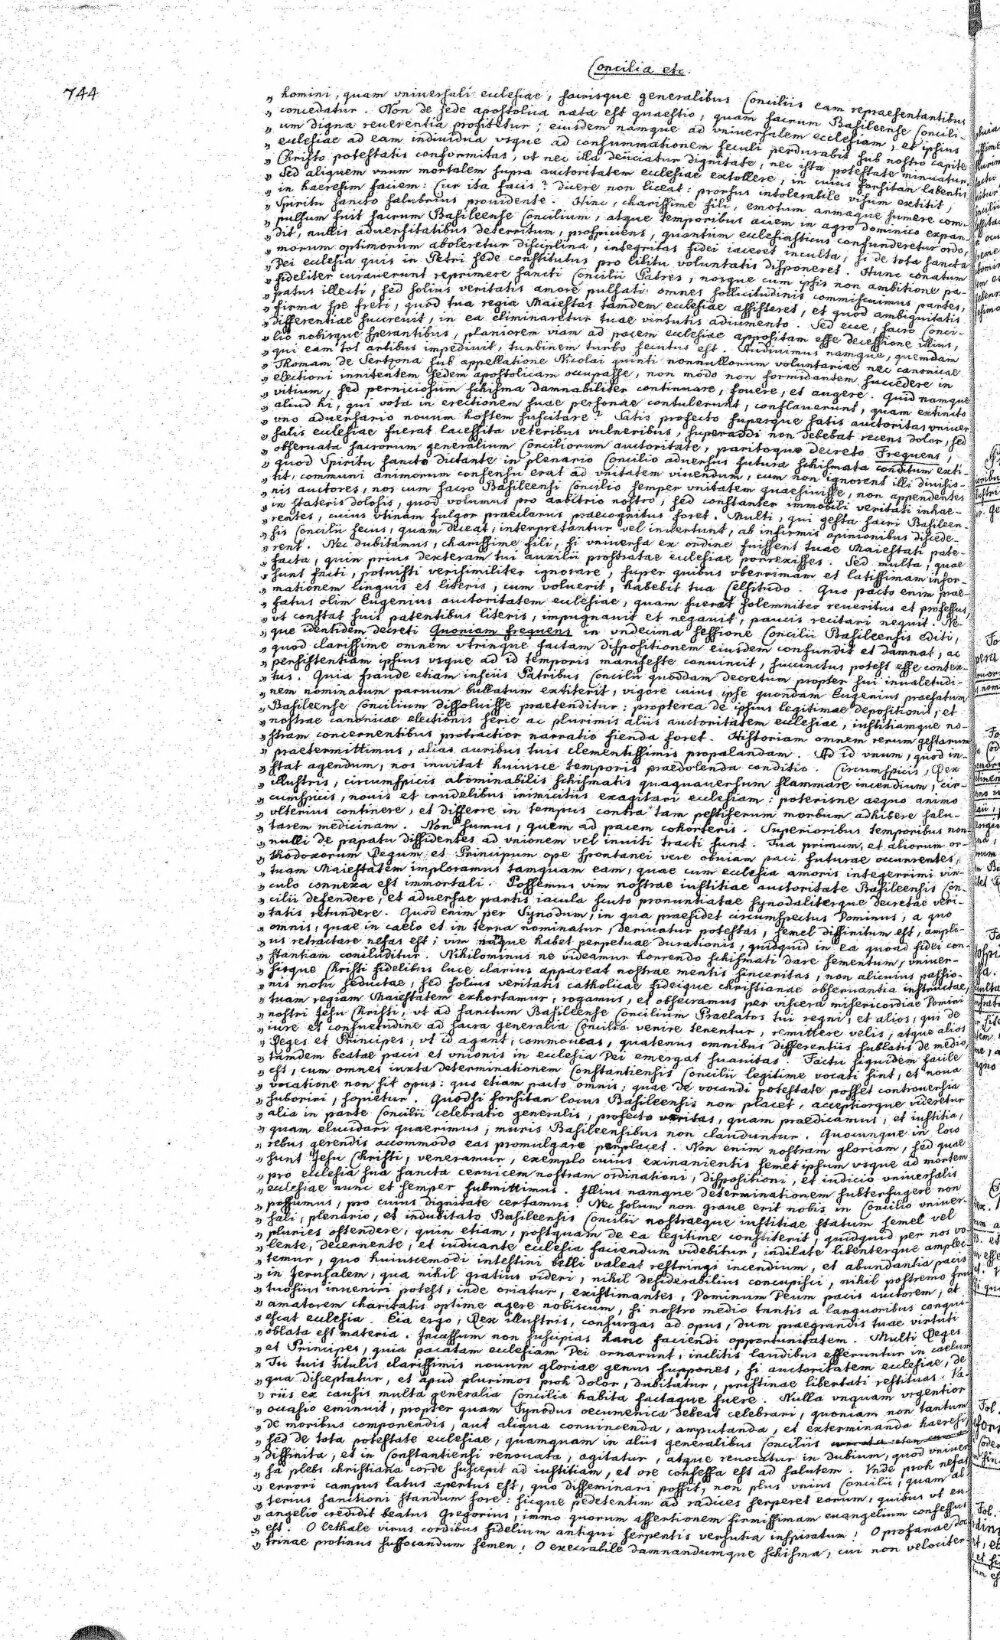 Concilia etc.
744
„ homini, quam vniuersali ecclesiae, sacrisque generalibus Conciliis eam repraesentantibus
„ concedatur. Non de sede apostolica nata est quaestio, quam sacrum Basileense Concili-
„ um digna reuerentia profitetur; eiusdem namque ad vniuersalem ecclesiam, et ipsius
„ ecclesiae ad eam indiuidua vsque ad consummationem seculi perdurabit sub nostro capite
„ Christo potestatis conformitas, vt nec illa deiiciatur dignitate, nec ista potestate minuatur
„ Sed aliquem vnum mortalem supra auctoritatem ecclesiae extollere, in cuius forsitan labentis
„ in haeresim faciem: Cur ita facis? dicere non liceat: prorsus intolerabile visum extitit,
„ Spiritu sancto salubrius prouidente. Hinc, charissime fili, emotum animaque sumere com-
„ pulsum fuit sacrum Basileense Concilium, atque temporibus aciem in agro dominico expan-
„ dit, nullis aduersitatibus deterritum, prospiciens, quantum ecclesiasticus confunderetur ordo,
„ morum optimorum aboleretur disciplina, integritas fidei iaceret inculta, si de tota sancta
„ Dei ecclesia quis in Petri sede constitutus pro libitu voluntatis disponeret. Hunc conatum
„ fideliter curauerunt reprimere sancti Concilii Patres, nosque cum ipsis non ambitione pa-
„ patus illecti, sed solius veritatis amore pulsati omnes sollicitudinis commiscuimus partes,
„ firma spe freti, quod tua regia Maiestas tandem ecclesiae assisteret, et quod ambiguitatis
„ differentiae succreuit, in ea eliminaretur tuae virtutis adiumento. Sed ecce, sacro Conci-
„ lio nobisque sperantibus, planiorem viam ad pacem ecclesiae appositam esse decessione illius,
„ qui eam tot artibus impediuit, turbinem turbo secutus est. Audiuimus namque, quemdam
„ Thomam de Sertzona sub appellatione Nicolai quinti nonnullorum voluntariae nec canonicae
„ electioni innitentem sedem apostolicam occupasse, non modo non formidantem succedere in
„ vitium, sed perniciosum schisma damnabiliter continuare, fouere, et augere. Quid namque
„ aliud hi, qui vota in erectionem suae personae contulerunt, conflauerunt, quam extincto
„ vno aduersario nouum hostem suscitare? Satis profecto superque satis auctoritas vniuer-
„ salis ecclesiae fuerat lacessita veteribus vulneribus, superaddi non debebat recens dolor, sed
„ obseruata sacrorum generalium Conciliorum auctoritate, pariterque decreto Frequens,
„ quod Spiritu sancto dictante in plenario Concilio aduersus futura schismata conditum exti-
„ tit, communi animorum consensu erat ad vnitatem viuendum, cum non ignorent illi diuisio-
„ nis auctores, nos cum sacro Basileensi Concilio semper vnitatem quaesiuisse, non appendentes
„ in stateris dolosis, quod volumus pro arbitrio nostro, sed constanter immobili veritati inhae-
„ rentes, cuius vtinam fulgor praeclarius praecognitus foret. Multi, qui gesta sacri Basileen-
„ sis Concilii secius, quam deceat, interpretantur vel inuertunt, ab infirmis opinionibus discede-
„ rent. Nec dubitamus, charissime fili, si vniuersa ex ordine fuissent tuae Maiestati pate-
„ facta, quin prius dexteram tui auxilii prostratae ecclesiae porrexisses. Sed multa, quae
„ sunt facti, potuisti verisimiliter ignorare, super quibus vberrimam et latissimam infor-
„ mationem linguis et literis, cum voluerit, habebit tua Celsitudo. Quo pacto enim prae-
„ fatus olim Eugenius auctoritatem ecclesiae, quam fuerat solemniter reueritus et professus,
„ vt constat suis patentibus literis, impugnauit et negauit, paucis recitari nequit. Ne-
„ que identidem decreti Quoniam frequens in vndecima sessione Concilii Basileensis editi,
„ quod clarissime omnem vtrinque factam dispositionem eiusdem confundit et damnat, ac
„ persistentiam ipsius vsque ad id temporis manifeste conuincit, succinctus potest esse contex-
„ tus. Quia fraude etiam insciis Patribus Concilii quoddam decretum propter sui inualetudi-
„ nem nominatum paruum bullatum extiterit, vigore cuius ipse quondam Eugenius praefatum
„ Basileense Concilium dissoluisse praetenditur: propterea de ipsius legitimae depositionis, et
„ nostrae canonicae electionis serie ac plurimis aliis auctoritatem ecclesiae, iustitiamque no-
„ stram concernentibus protractior narratio fienda foret. Historiam omnem rerum gestarum
„ praetermittimus, alias auribus tuis clementissimis propalandam. Ad id vnum, quod in-
„ stat agendum, nos inuitat huiusce temporis praedolenda conditio. Circumspicis, Rex
„ illustris, circumspicis abominabilis schismatis quaquauersum flammare incendium, cir-
„ cumspicis, nouis et crudelibus inimicitiis exagitari ecclesiam: poterisne aequo animo
„ vlterius continere, et differre in tempus contra tam pestiferum morbum adhibere salu-
„ tarem medicinam. Non sumus, quem ad pacem cohorteris. Superioribus temporibus non
„ nulli de papatu diffidentes ad vnionem vel inuiti tracti sunt. Tua primum, et aliorum or-
„ thodoxorum Regum et Principum ope spontanei vere obuiam paci futurae occurrentes,
„ tuam Maiestatem imploramus tamquam eam, quae cum ecclesia amoris integerrimi vin-
„ culo connexa est immortali. Possemus vim nostrae iustitiae auctoritate Basileensis Con-
„ cilii defendere, et aduersae partis iacula scuto pronuntiatae synodaliterque decretae veri-
„ tatis retundere. Quod enim per Synodum, in qua praesidet circumspectus Dominus, a quo
„ omnis, quae in caelo et in terra nominatur, deriuatur potestas, semel diffinitum est, ampli-
„ us retractare nefas est; vim namque habet perpetuae durationis, quidquid in ea quoad fidei con-
„ stantiam concluditur. Nihilominus ne videamur horrendo schismati dare fomentum, vniuer-
„ sisque Christi fidelibus luce clarius appareat nostrae mentis sinceritas, non alicuius passio-
„ nis motu seductae, sed solius veritatis catholicae fideique christianae obseruantia instructae,
„ tuam regiam Maiestatem exhortamur, rogamus, et obsecramus per viscera misericordiae Domini
„ nostri Jesu Christi, vt ad sanctum Basileense Concilium Praelatos tui regni, et alios, qui de
„ iure et consuetudine ad sacra generalia Concilia venire tenentur, remittere velis, atque alios
„ Reges et Principes, vt id agant, commoueas, quatenus omnibus differentiis sublatis de medio,
„ tandem beatae pacis et vnionis in ecclesia Dei emergat suauitas. Factu siquidem facile
„ est, cum omnes iuxta determinationem Constantiensis Concilii legitime vocati sint, et noua
„ vocatione non sit opus: quo etiam pacto omnis, quae de vocandi potestate posset controuersia
„ suboriri, sopietur. Quodsi forsitan locus Basileensis non placet, acceptiorque videretur
„ alia in parte Concilii celebratio generalis, profecto veritas, quam praedicamus, et iustitia,
„ quam elucidari quaerimus, muris Basileensibus non clauduntur. Quocunque in loco
„ rebus gerendis accommodo eas promulgare perplacet. Non enim nostram gloriam, sed quae
„ sunt Jesu Christi, veneramur, exemplo cuius exinanientis semet ipsum vsque ad mortem
„ pro ecclesia sua sancta ceruicem nostram ordinationi, dispositioni, et iudicio vniuersalis
„ ecclesiae nunc et semper submittimus. Illius namque determinationem subterfugere non
„ possumus, pro cuius dignitate certamus. Nec solum non graue erit nobis in Concilio vniuer-
„ sali, plenario, et indubitato Basileensis Concilii nostraeque iustitiae statum semel vel
„ pluries ostendere, quin etiam, postquam de ea legitime constiterit, quidquid per nos vo-
„ lente, decernente, et iudicante ecclesia faciendum videbitur, indilate libenterque amplec-
„ temur, quo huiuscemodi intestini belli valeat restringi incendium, et abundantia pacis
„ in Jerusalem, qua nihil gratius videri, nihil desiderabilius concupisci, nihil postremo fru-
„ tuosius inueniri potest, inde oriatur, existimantes, Dominum Deum pacis auctorem, et
„ amatorem charitatis optime agere nobiscum, si nostro medio tantis a languoribus conqui-
„ escat ecclesia. Eia ergo, Rex illustris, consurgas ad opus, dum praegrandis tuae virtuti
„ oblata est materia. Incassum non suscipias hanc faciendi opportunitatem. Multi Reges
„ et Principes, quia pacatam ecclesiam Dei ornarunt, inclitis laudibus efferuntur in caelum
„ Tu tuis titulis clarissimis nouum gloriae genus suppones, si auctoritatem ecclesiae, de
„ qua disceptatur, et apud plurimos proh dolor, dubitatur, pristinae libertati restituas. Va-
„ riis ex causis multa generalia Concilia habita factaque fuere. Nulla vnquam vrgentior
„ occasio emicuit, propter quam Synodus oecumenica debeat celebrari, quoniam non tantum
„ de moribus componendis, aut aliqua conuincenda, amputanda, et exterminanda haeresi,
„ sed de tota potestate ecclesiae, quamquam in aliis generalibus Conciliis
„ diffinita, et in Constantiensi renouata, agitatur, atque reuocatur in dubium, quod vniuer-
„ sa plebs christiana corde suscepit ad iustitiam, et ore confessa est ad salutem. Vnde proh nefas
„ errori campus latus apertus est, quo disseminari possit, non plus vnius Concilii, quam al-
„ terius sanctioni standum fore: sicque pedetentim ad radices serperet eorum, quibus vt eu-
„ angelio credidit beatus Gregorius, immo quorum assertionem firmissimam euangelium confessus
„ est. O lethale virus cordibus fidelium antiqui serpentis versutia inspiratum! O profanae doc-
„ trinae protinus suffocandum semen! O execrabile damnandumque schisma, cui non velociter